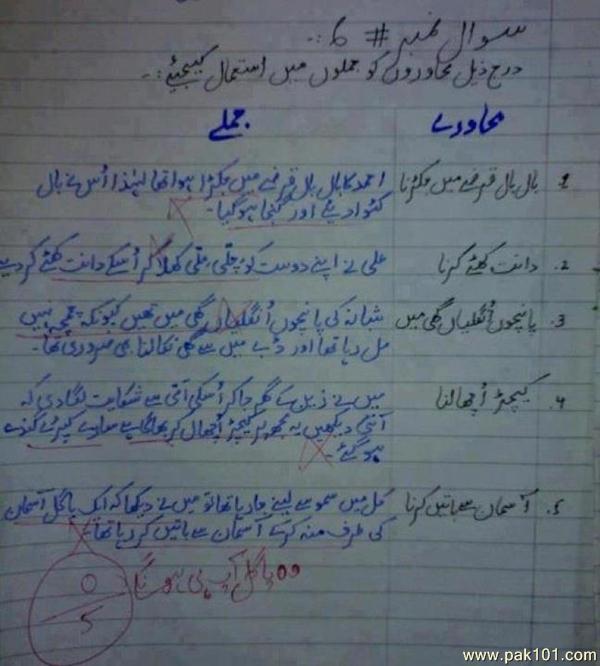 سوال نمبر # 6 :۔
درج ذیل محاوروں کو جملوں میں استعمال کیجئیے :۔
محاورے جملے
1. بال بال قرضے میں جکڑنا احمد کا بال بال قرضے میں جکڑا ہوا تھا لہٰذا اُس نے بال
کٹوا دیئے اور گنجا ہو گیا۔
2. دانت کھٹے کرنا علی نے اپنے دوست کو املی کھلا کر اُسکے دانت کھٹے کر دیے
3. پانچوں اُنگلیاں گھی میں شانہ کی پانچوں اُنگلیاں گھی میں تھیں کیونکہ چمچہ نہیں
مل رہا تھا اور ڈبے میں سے گھی نکالنا بھی ضروری تھا۔
4. کیچڑ اُچھالنا میں نے ذیل کے گھر جا کر اُسکی آنٹی سے شکایت لگا دی کہ
آنٹی دیکھیں یہ مجھ پر کیچڑ اُچھال کر بھاگا ہے سارے کپڑے گندے
ہو گئے۔
5. آسمان سے باتیں کرنا کل میں سموسے لینے جا رہا تھا تو میں نے دیکھا کہ ایک پاگل آسمان
کی طرف منہ کرکے آسمان سے باتیں کر رہا تھا۔
وہ پاگل آپ ہی ہو گا
0
5
www.pak101.com